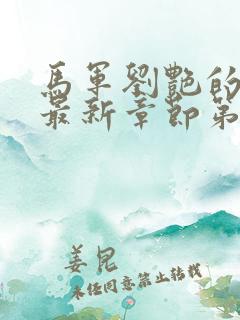 馬軍劉艷的
最新章節第
姜昆
未經同意禁止轉載